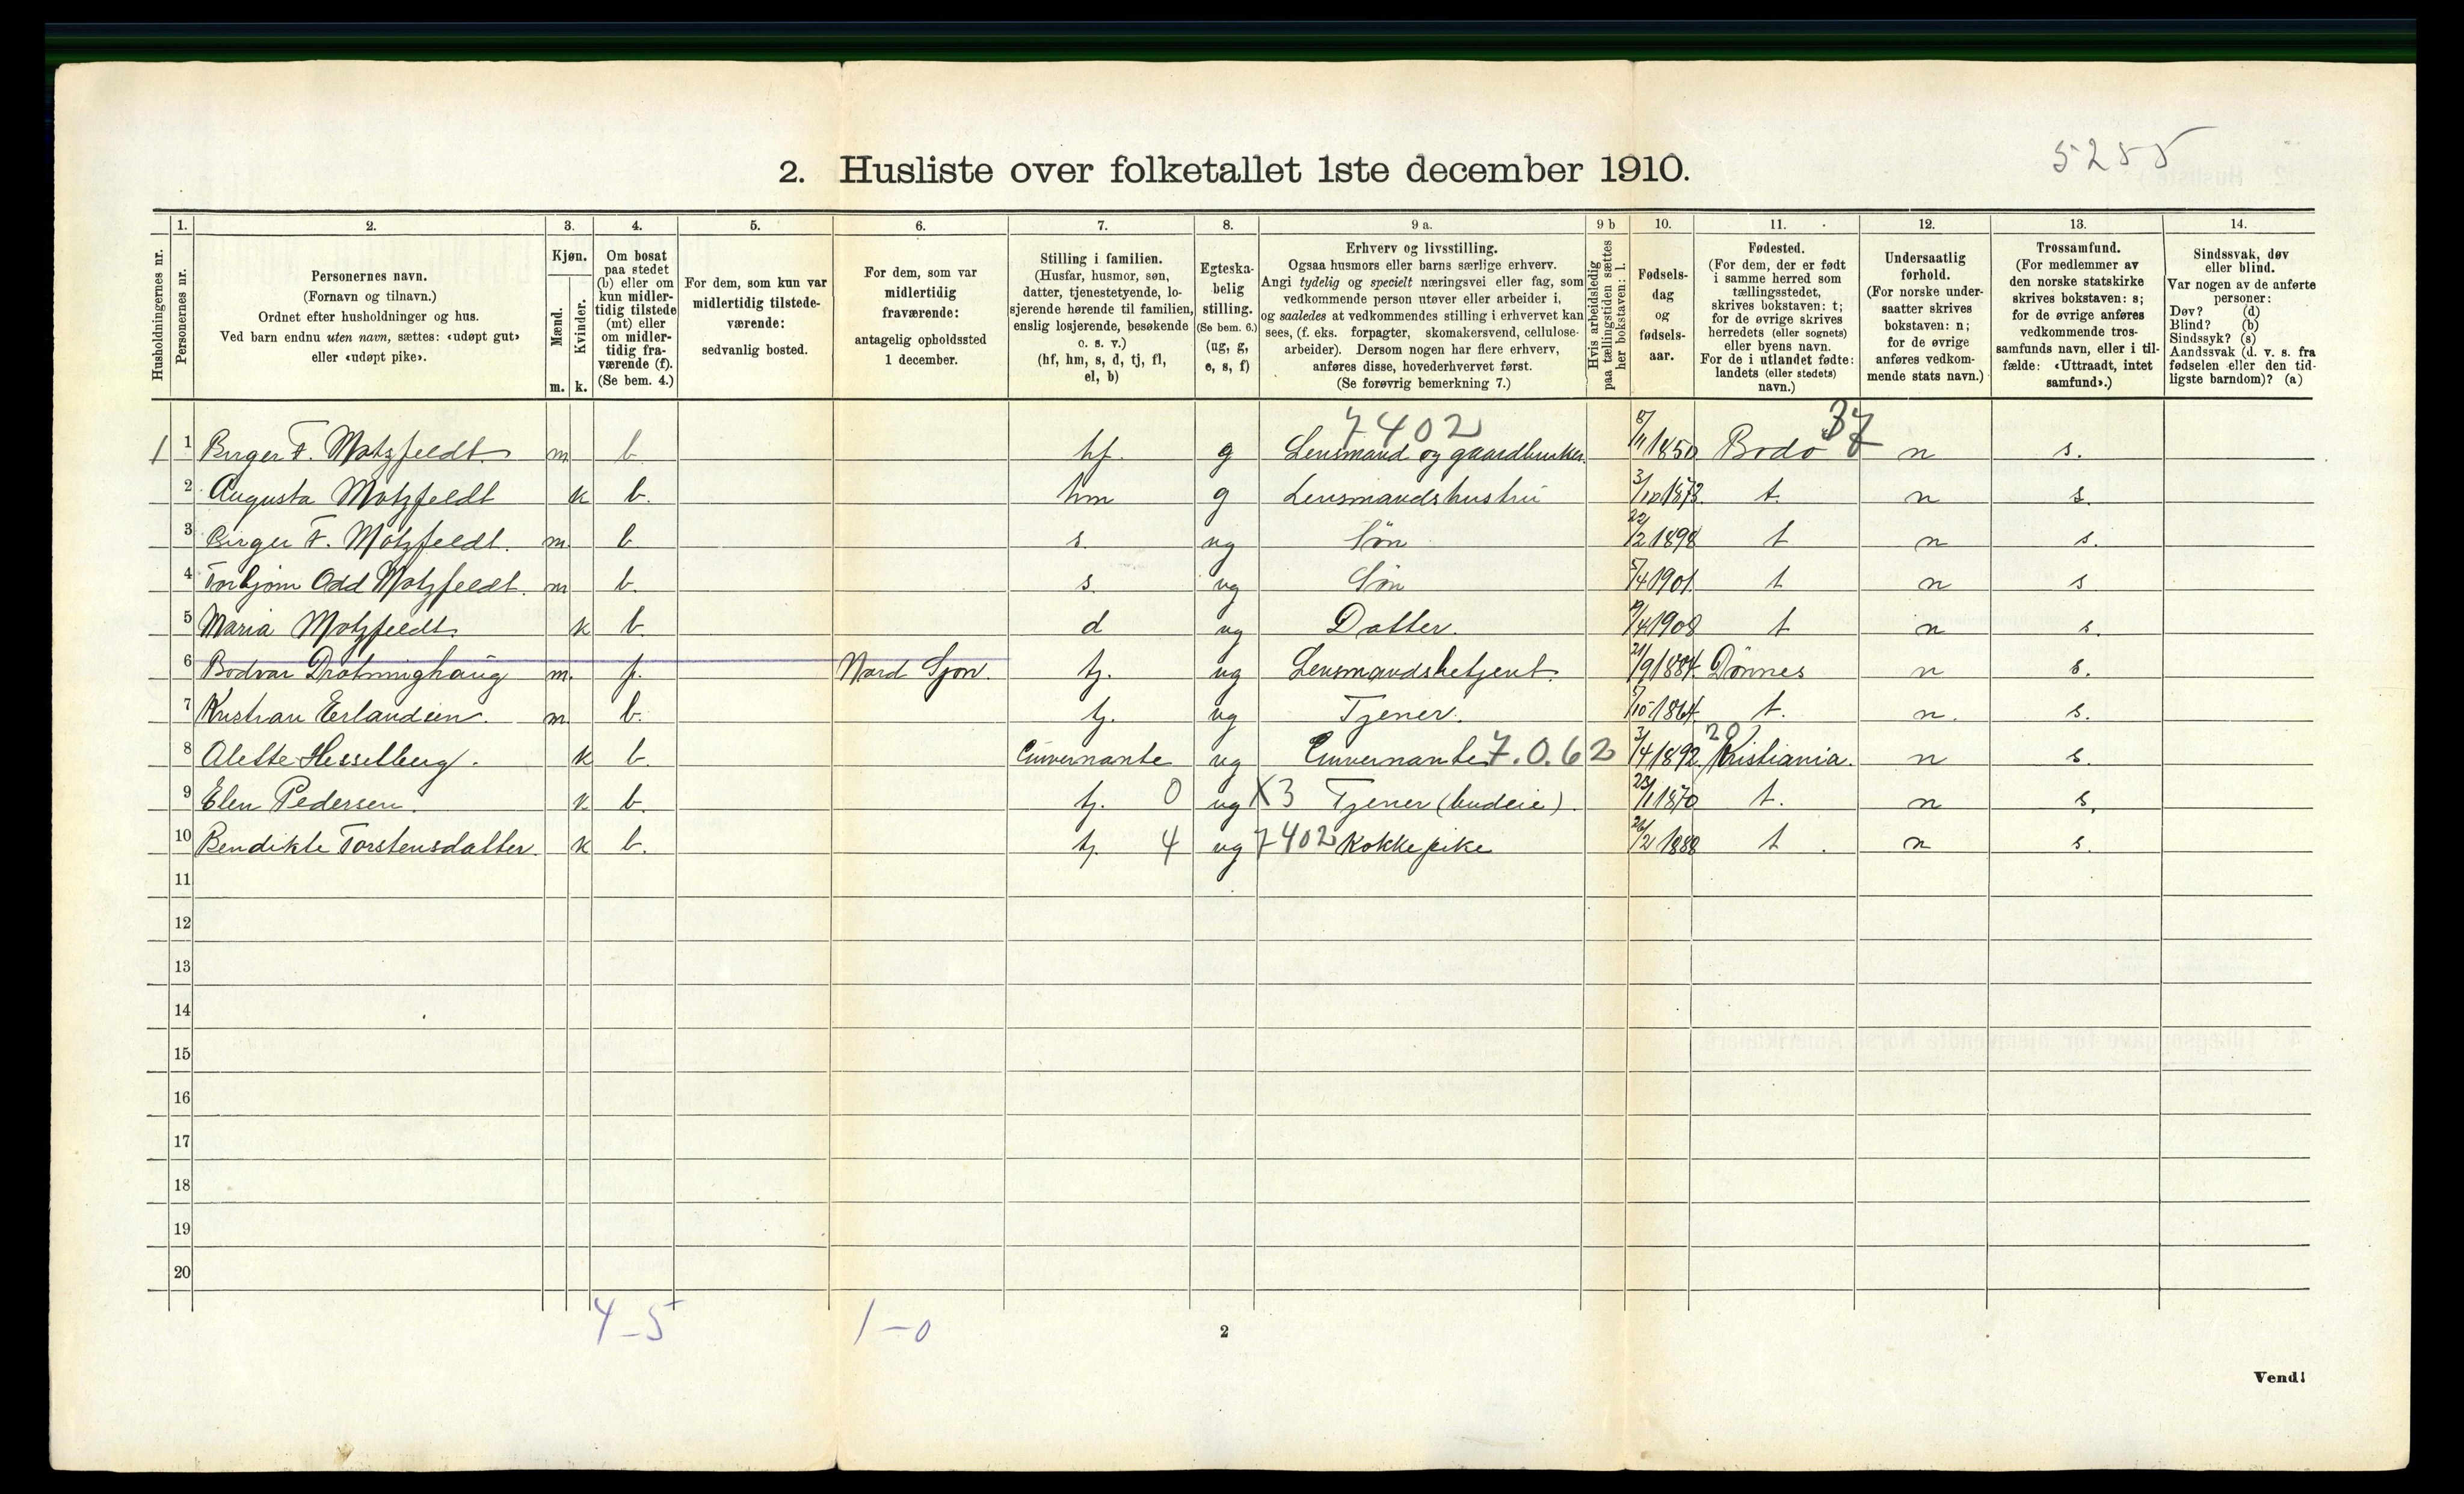 5255
2. Husliste over folketallet 1ste december 1910.
1. 2. 3. 4. 5. 6. 7. 8. 9 a. 9 b 10. 11. 12. 13. 14.
Husholdningernes nr.
Personernes nr.
Personernes navn.
(Fornavn og tilnavn.)
Ordnet efter husholdninger og hus.
Ved barn endnu uten navn, sættes: «udøpt gut»
eller «udøpt pike».
Kjøn.
Mænd.
Kvinder.
m. k.
Om bosat
paa stedet
(b) eller om
kun midler-
tidig tilstede
(mt) eller
om midler-
tidig fra-
værende (f).
(Se bem. 4.)
For dem, som kun var
midlertidig tilstede-
værende:
sedvanlig bosted.
For dem, som var
midlertidig
fraværende:
antagelig opholdssted
1 december.
Stilling i familien.
(Husfar, husmor, søn,
datter, tjenestetyende, lo-
sjerende hørende til familien,
enslig losjerende, besøkende
o. s. v.)
(hf, hm, s, d, tj, fl,
el, b)
Egteska-
belig
stilling.
(Se bem. 6.)
(ug, g,
e, s, f)
Erhverv og livsstilling.
Ogsaa husmors eller barns særlige erhverv.
Angi tydelig og specielt næringsvei eller fag, som
vedkommende person utøver eller arbeider i,
og saaledes at vedkommendes stilling i erhvervet kan
sees, (f. eks. forpagter, skomakersvend, cellulose-
arbeider). Dersom nogen har flere erhverv,
anføres disse, hovederhvervet først.
(Se forøvrig bemerkning 7.)
Hvis arbeidsledig
paa tællingstiden sættes
her bokstaven: l.
Fødsels-
dag
og
fødsels-
aar.
Fødested.
(For dem, der er født
i samme herred som
tællingsstedet,
skrives bokstaven: t;
for de øvrige skrives
herredets (eller sognets)
eller byens navn.
For de i utlandet fødte:
landets (eller stedets)
navn.)
Undersaatlig
forhold.
(For norske under-
saatter skrives
bokstaven: n;
for de øvrige
anføres vedkom-
mende stats navn.)
Trossamfund.
(For medlemmer av
den norske statskirke
skrives bokstaven: s;
for de øvrige anføres
vedkommende tros-
samfunds navn, eller i til-
fælde: «Uttraadt, intet
samfund».)
Sindssvak, døv
eller blind.
Var nogen av de anførte
personer:
Døv? (d)
Blind? (b)
Sindssyk? (s)
Aandssvak (d. v. s. fra
fødselen eller den tid-
ligste barndom)? (a)
7402 37
1 1 Birger F. Motzfeldt. m b. hf. g Lensmand og gaardbruker. 5/11 1850 Bodø n s.
2 Augusta Motzfeldt k b. hm g Lensmandshustru 3/10 1873 t. n s.
3 Birger F. Motzfeldt. m. b s. ug Søn 22/2 1898 t n s.
4 Torbjørn Odd Motzfeldt. m b. s. ug Søn 5/4 1901. t n s
5 Maria Motzfeldt. k b. d ug Datter. 9/4 1908 t n s.
6 Bodvar Drotninghaug m. f. Nord Sjon. tj. ug Lensmandsbetjent. 21/9 1884. Dønnes n s.
7 Kristian Erlandsen. m b. tj. ug Tjener. 5/10 1864 t. n. s.
8 Alette Hesselberg. k b. Guvernante ug Guvernante 7.0.62 3/4 1892. 20 Kristiania. n s.
9 Elen Pedersen. k b. tj. 0 ug X3 Tjener (budeie). 23/1 1870 t. n s.
10 Bendikte Torstensdatter. k b. tj. 4 ug 7402 Kokkepike 26/2 1888 t. n s.
11
12
13
14
15
16
17
18
19
20
4-5 1-0
2
Vend!